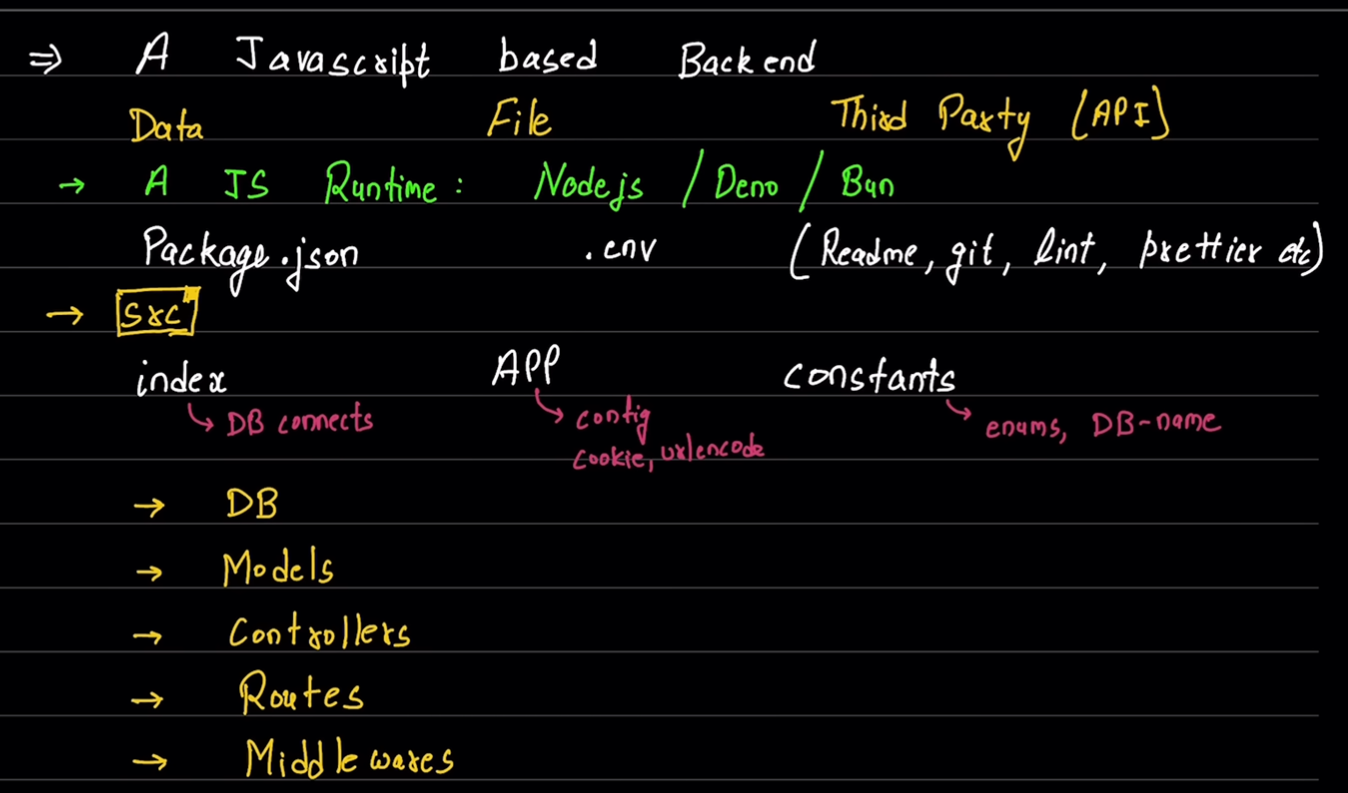 ⇒ A Javascript based Backend
Data File Third Party (API)
→ A JS Runtime: Nodejs / Deno / Bun
Package.json .env (Readme, git, lint, prettier etc)
→ Src
index APP constants
↳ DB connects ↳ config ↳ enums, DB-name
cookie, urlencode
→ DB
→ Models
→ Controllers
→ Routes
→ Middlewares